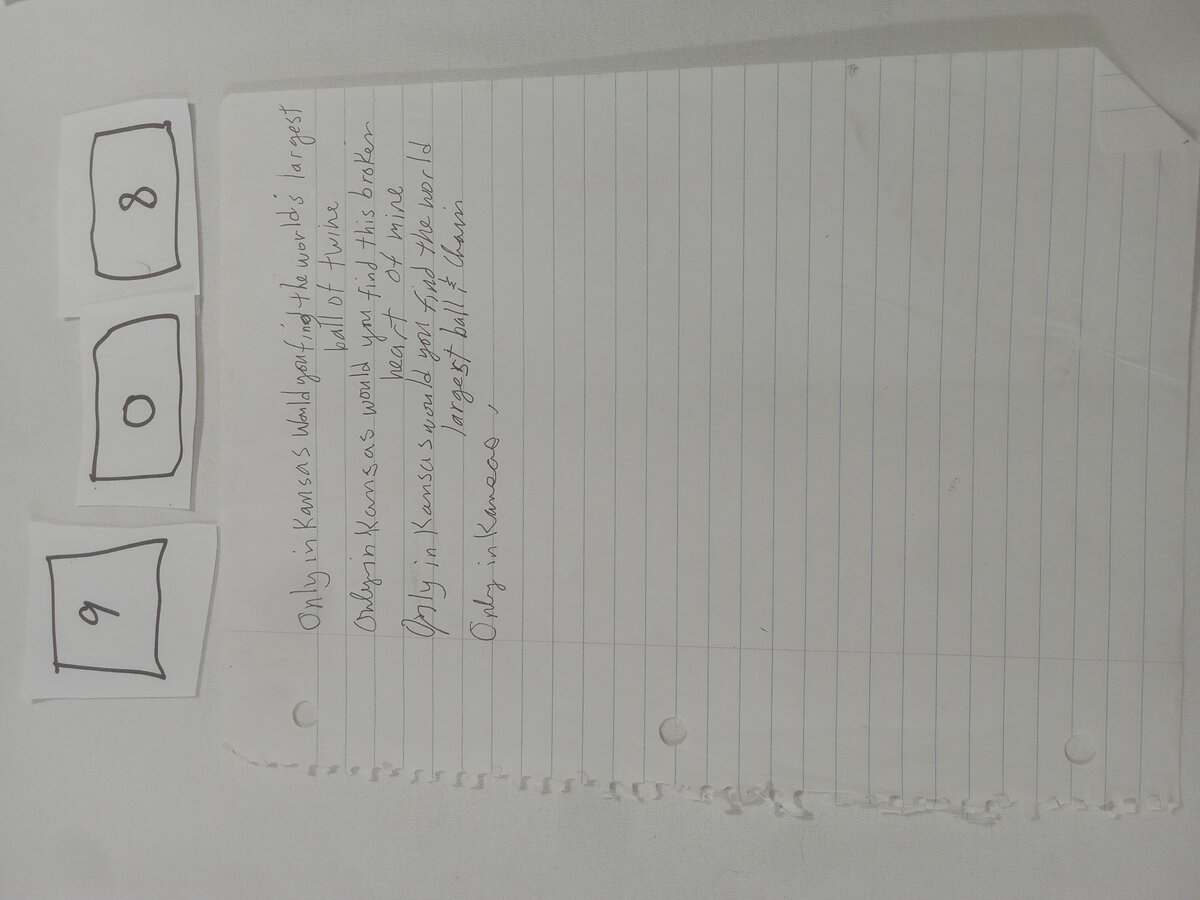 9 0 8
Only in Kansas would you find the world's largest
ball of twine
Only in Kansas would you find this broken
heart of mine
Only in Kansas would you find the world
largest ball & chain
Only in Kansas,